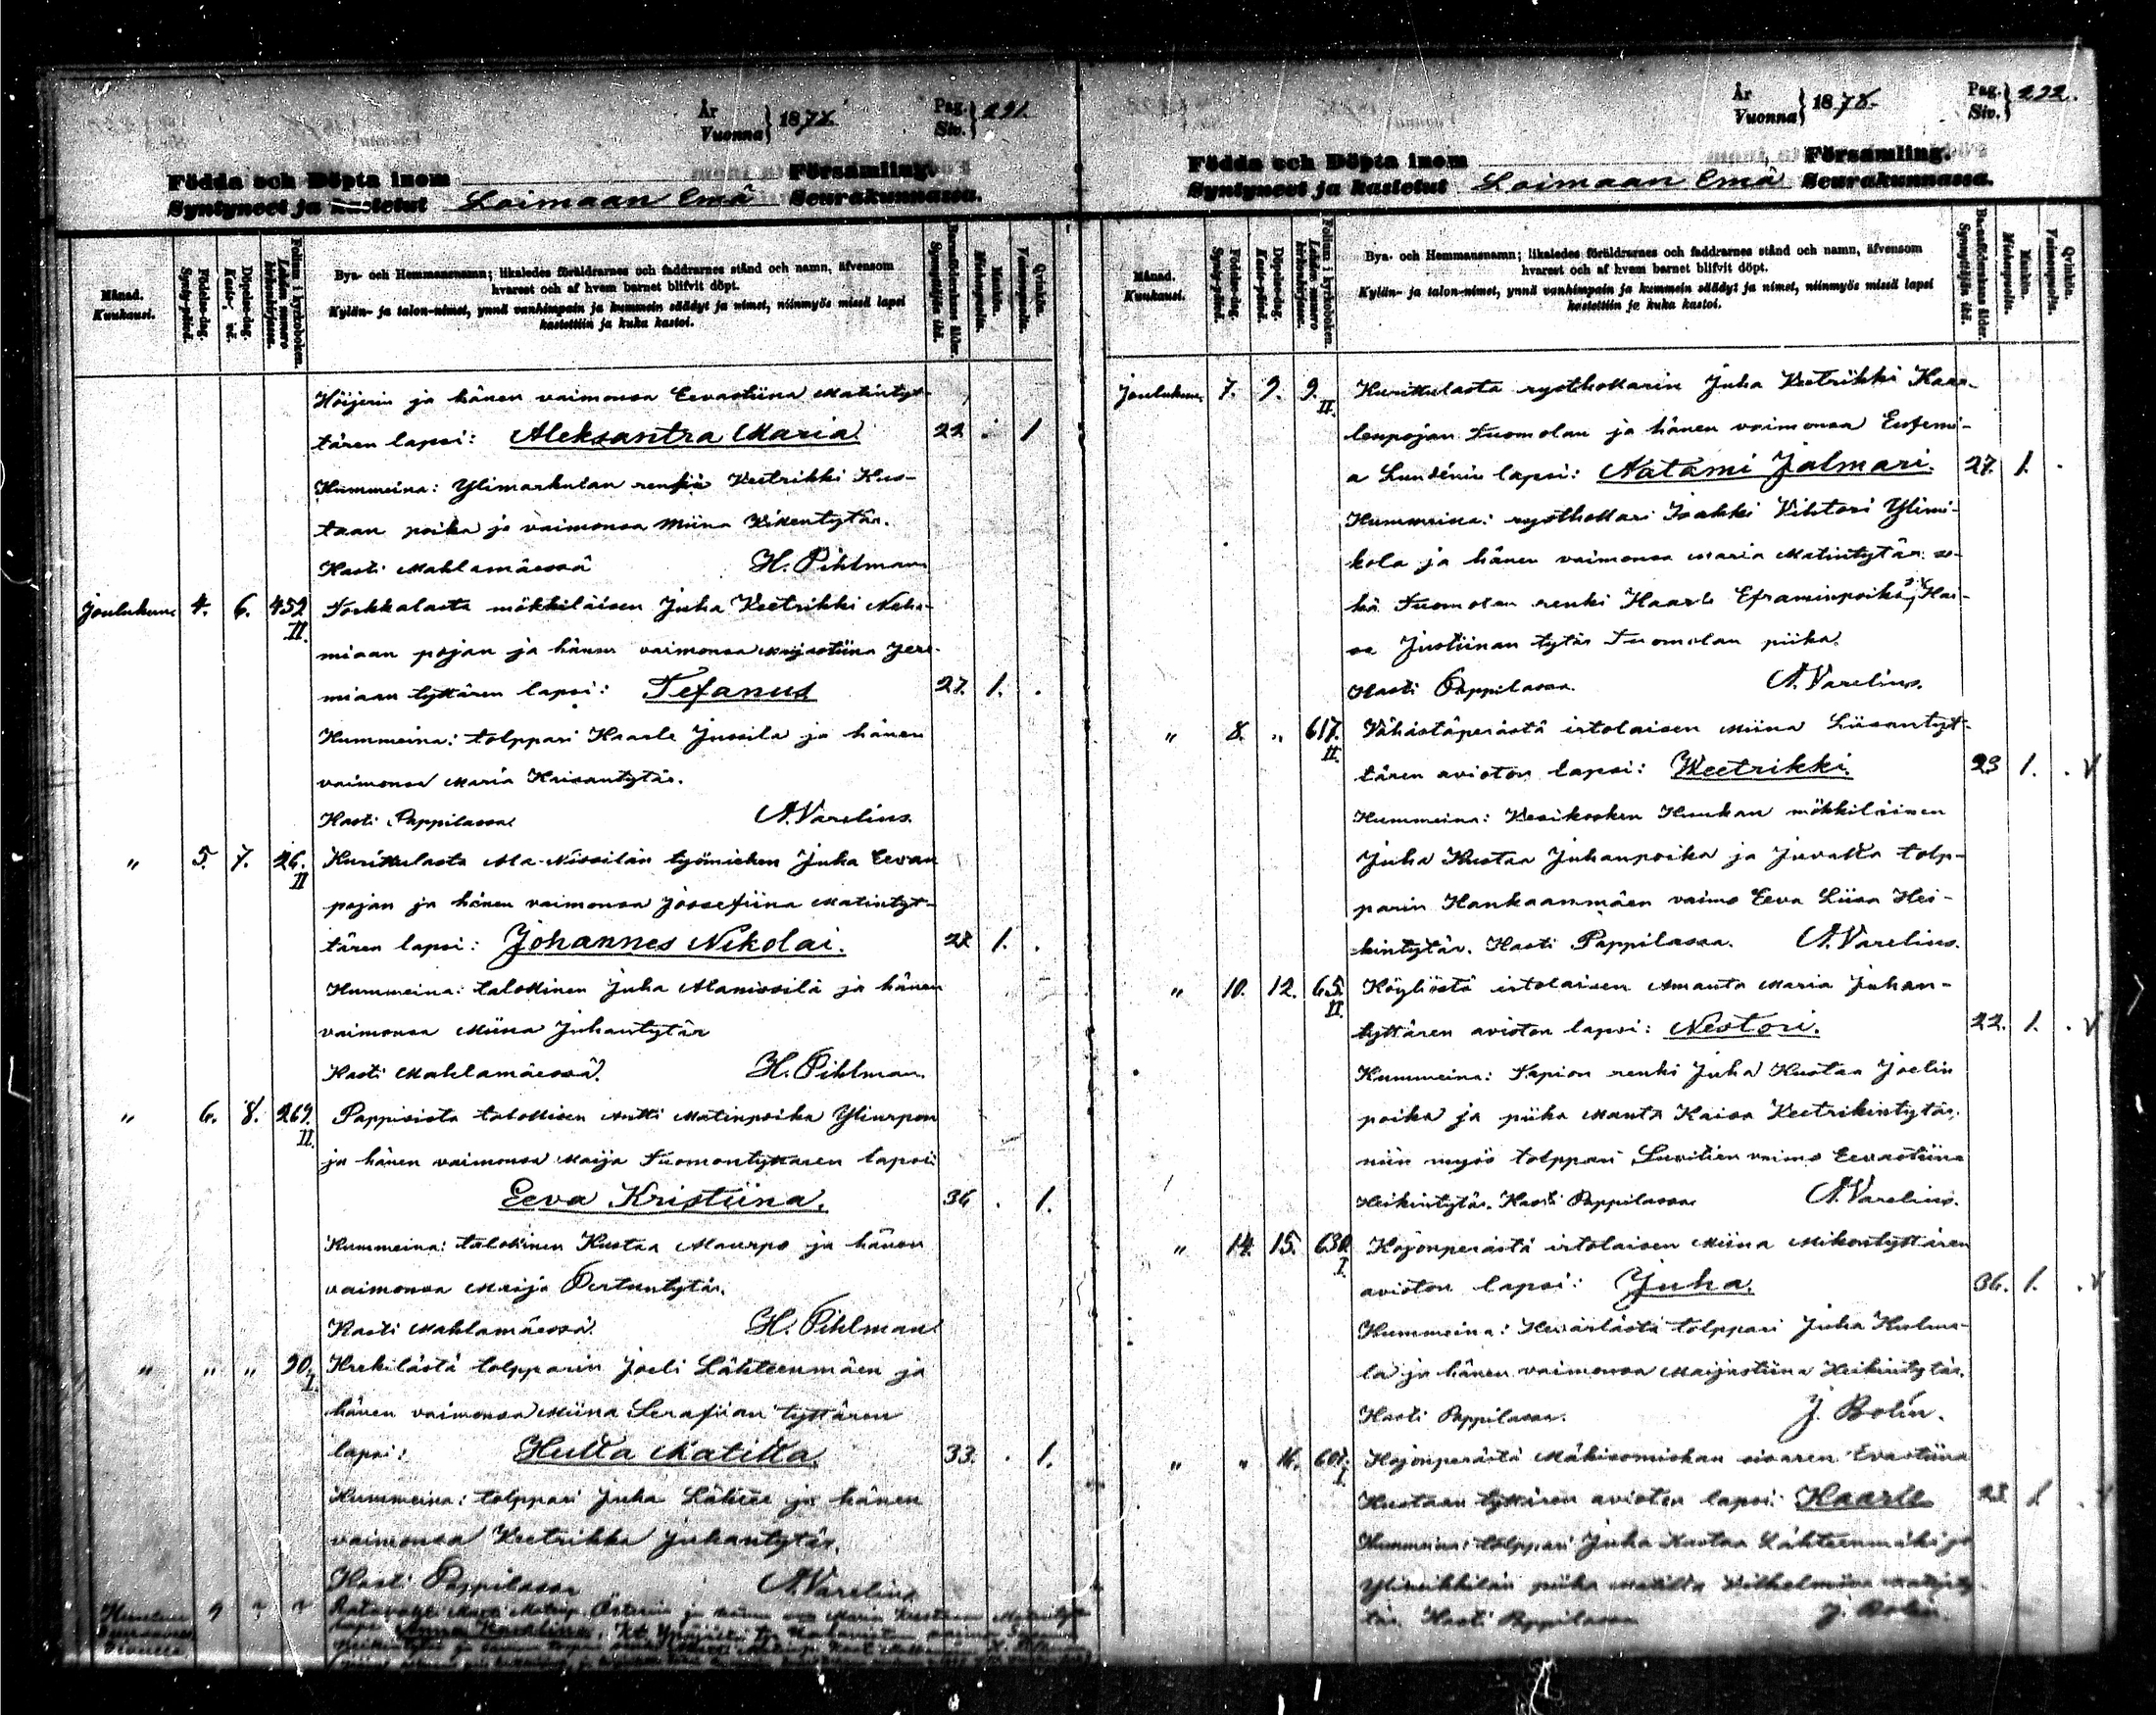 År
Vuonna } 1878.
Pag.
Siv. } 291.
Födda och Döpta inom Församling.
Syntyneet ja kastetut Loimaan Emä Seurakunnassa.
Månad.
Kuukausi.
Födelse-dag.
Synty-päivä.
Döpelse-dag.
Kaste-
Folium i kyrkoboken.
Lehden numero kirkonkirjassa.
Bya- och Hemmansnamn; likaledes föräldrarnes och faddrarnes stånd och namn, äfvensom
hvarest och af hvem barnet blifvit döpt.
Kylän- ja talon-nimet, ynnä vanhimpain ja kummein säädyt ja nimet, niinmyös missä lapsi
kastettiin ja kuka kastoi.
Barnaföderskans ålder.
Synnyttäjän ikä.
Mankön.
Miehenpuolia.
Qvinkön.
Vaimonpuolia.
Höijerin ja hänen vaimonsa Eevastiina Matintyt-
tären lapsi: Aleksantra Maria. 22 . 1
Kummeina: Ylimarkulan renki Keetrikki Kus-
taan poika ja vaimonsa Miina
Kasti Mahlamäessä H. Pihlman
Joulukuu 4. 6. 452 II. mökkiläisen Juha Keetrikki Nehe-
miaan pojan ja hänen vaimonsa Maijastiina Jere-
miaan tyttären lapsi: Tefanus 27. 1. .
Kummeina: tolppari Kaarle Jussila ja hänen
vaimonsa Maria Kaisantytär.
Kasti Pappilassa A. Varelius.
" 5. 7. 26. II Kurittulasta Ala-Nissilän työmiehen Juha Eevan
pojan ja hänen vaimonsa Joosefiina Matintyt-
tären lapsi: Johannes Nikolai. 28 1. .
Kummeina: talollinen Juha Alanissilä ja hänen
vaimonsa Miina Juhantytär
Kasti Mahlamäessä. H. Pihlman.
" 6. 8. 269. II. Pappisista talollisen Antti Matinpoika Yliurpon
ja hänen vaimonsa Maija Tuomontyttären lapsi:
Eeva Kristiina. 36 . 1.
Kummeina: talollinen Kustaa Alaurpo ja hänen
vaimonsa Maija Pertuntytär.
Kasti Mahlamäessä. H. Pihlman
" " " 90. I. Krekilästä tolpparin Joeli Lähteenmäen ja
hänen vaimonsa Miina Serafiian tyttären
lapsi: Hulta Matilta. 33. . 1.
Kummeina: tolppari Juha Lähde ja hänen
vaimonsa Keetrikka Juhantytär.
Kasti Pappilassa A. Varelius
År
Vuonna } 1878.
Pag.
Siv. } 292.
Födda och Döpta inom Församling.
Syntyneet ja kastetut Loimaan Emä Seurakunnassa.
Månad.
Kuukausi.
Födelse-dag.
Synty-päivä.
Döpelse-dag.
Kaste-päivä.
Folium i kyrkoboken.
Lehden numero kirkonkirjassa.
Bya- och Hemmansnamn; likaledes föräldrarnes och faddrarnes stånd och namn, äfvensom
hvarest och af hvem barnet blifvit döpt.
Kylän- ja talon-nimet, ynnä vanhimpain ja kummein säädyt ja nimet, niinmyös missä lapsi
kastettiin ja kuka kastoi.
Barnaföderskans ålder.
Synnyttäjän ikä.
Mankön.
Miehenpuolia.
Qvinkön.
Vaimonpuolia.
Joulukuu 7. 9. 9. II. Kurittulasta rysthollarin Juha Keetrikki Kaar-
lenpojan Tuomolan ja hänen vaimonsa Eufemi-
a Lundénin lapsi: Natami Jalmari. 27. 1. .
Kummeina: rysthollari Iisakki Vihtori Ylimi-
kola ja hänen vaimonsa Maria Matintytär se-
kä Tuomolan renki Kaarle Eframinpoika, Kai-
sa Justiinan tytär Tuomolan piika.
Kasti Pappilassa. A. Varelius.
" 8. " 617. II Vähästäperästä irtolaisen Miina Liisantyt-
tären avioton lapsi: Keetrikki. 23 1. . V
Kummeina: Kesikosken mökkiläinen
Juha Kustaa Juhanpoika ja tolp-
parin Hankaanmäen vaimo Eeva Liisa Hei-
kintytär. Kasti Pappilassa. A. Varelius.
" 10. 12. 65. II. Köyliöstä irtolaisen Amanta Maria Juhan-
tyttären avioton lapsi: Nestori. 22. 1. . V
Kummeina: renki Juha Kustaa Joelin
poika ja piika Manta Kaisa Keetrikintytär,
niin myös tolppari vaimo Eevastiina
Heikintytär. Kasti Pappilassa A. Varelius.
" 14. 15. 630. I. Kojonperästä irtolaisen Miina Mikontyttären
avioton lapsi: Juha. 36. 1. . V
Kummeina: tolppari Juha
la ja hänen vaimonsa Maijastiina Heikintytär.
Kasti Pappilassa. J. Bolin.
" " 16. 601. I. Kojonperästä sisaren Evastiina
Kustaan tyttären avioton lapsi: Kaarle 28. 1 . V
Kummeina: tolppari Juha Kustaa Lähteenmäki ja
piika Matilta Vilhelmiina
tär. Kasti Pappilassa J. Bolin.